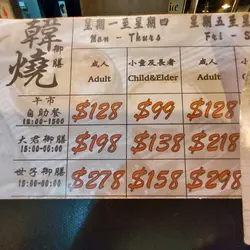 韓燒 御膳
星期一至星期四
Mon - Thurs
星期五至
Fri - S
成人
Adult
小童及長者
Child&Elder
成人
Adult
午市
自助餐
12:00-1500
$128 $99 $128
大君御膳
18:00-00:00
$198 $138 $218
世子御膳
18:00-00:00
$278 $158 $298